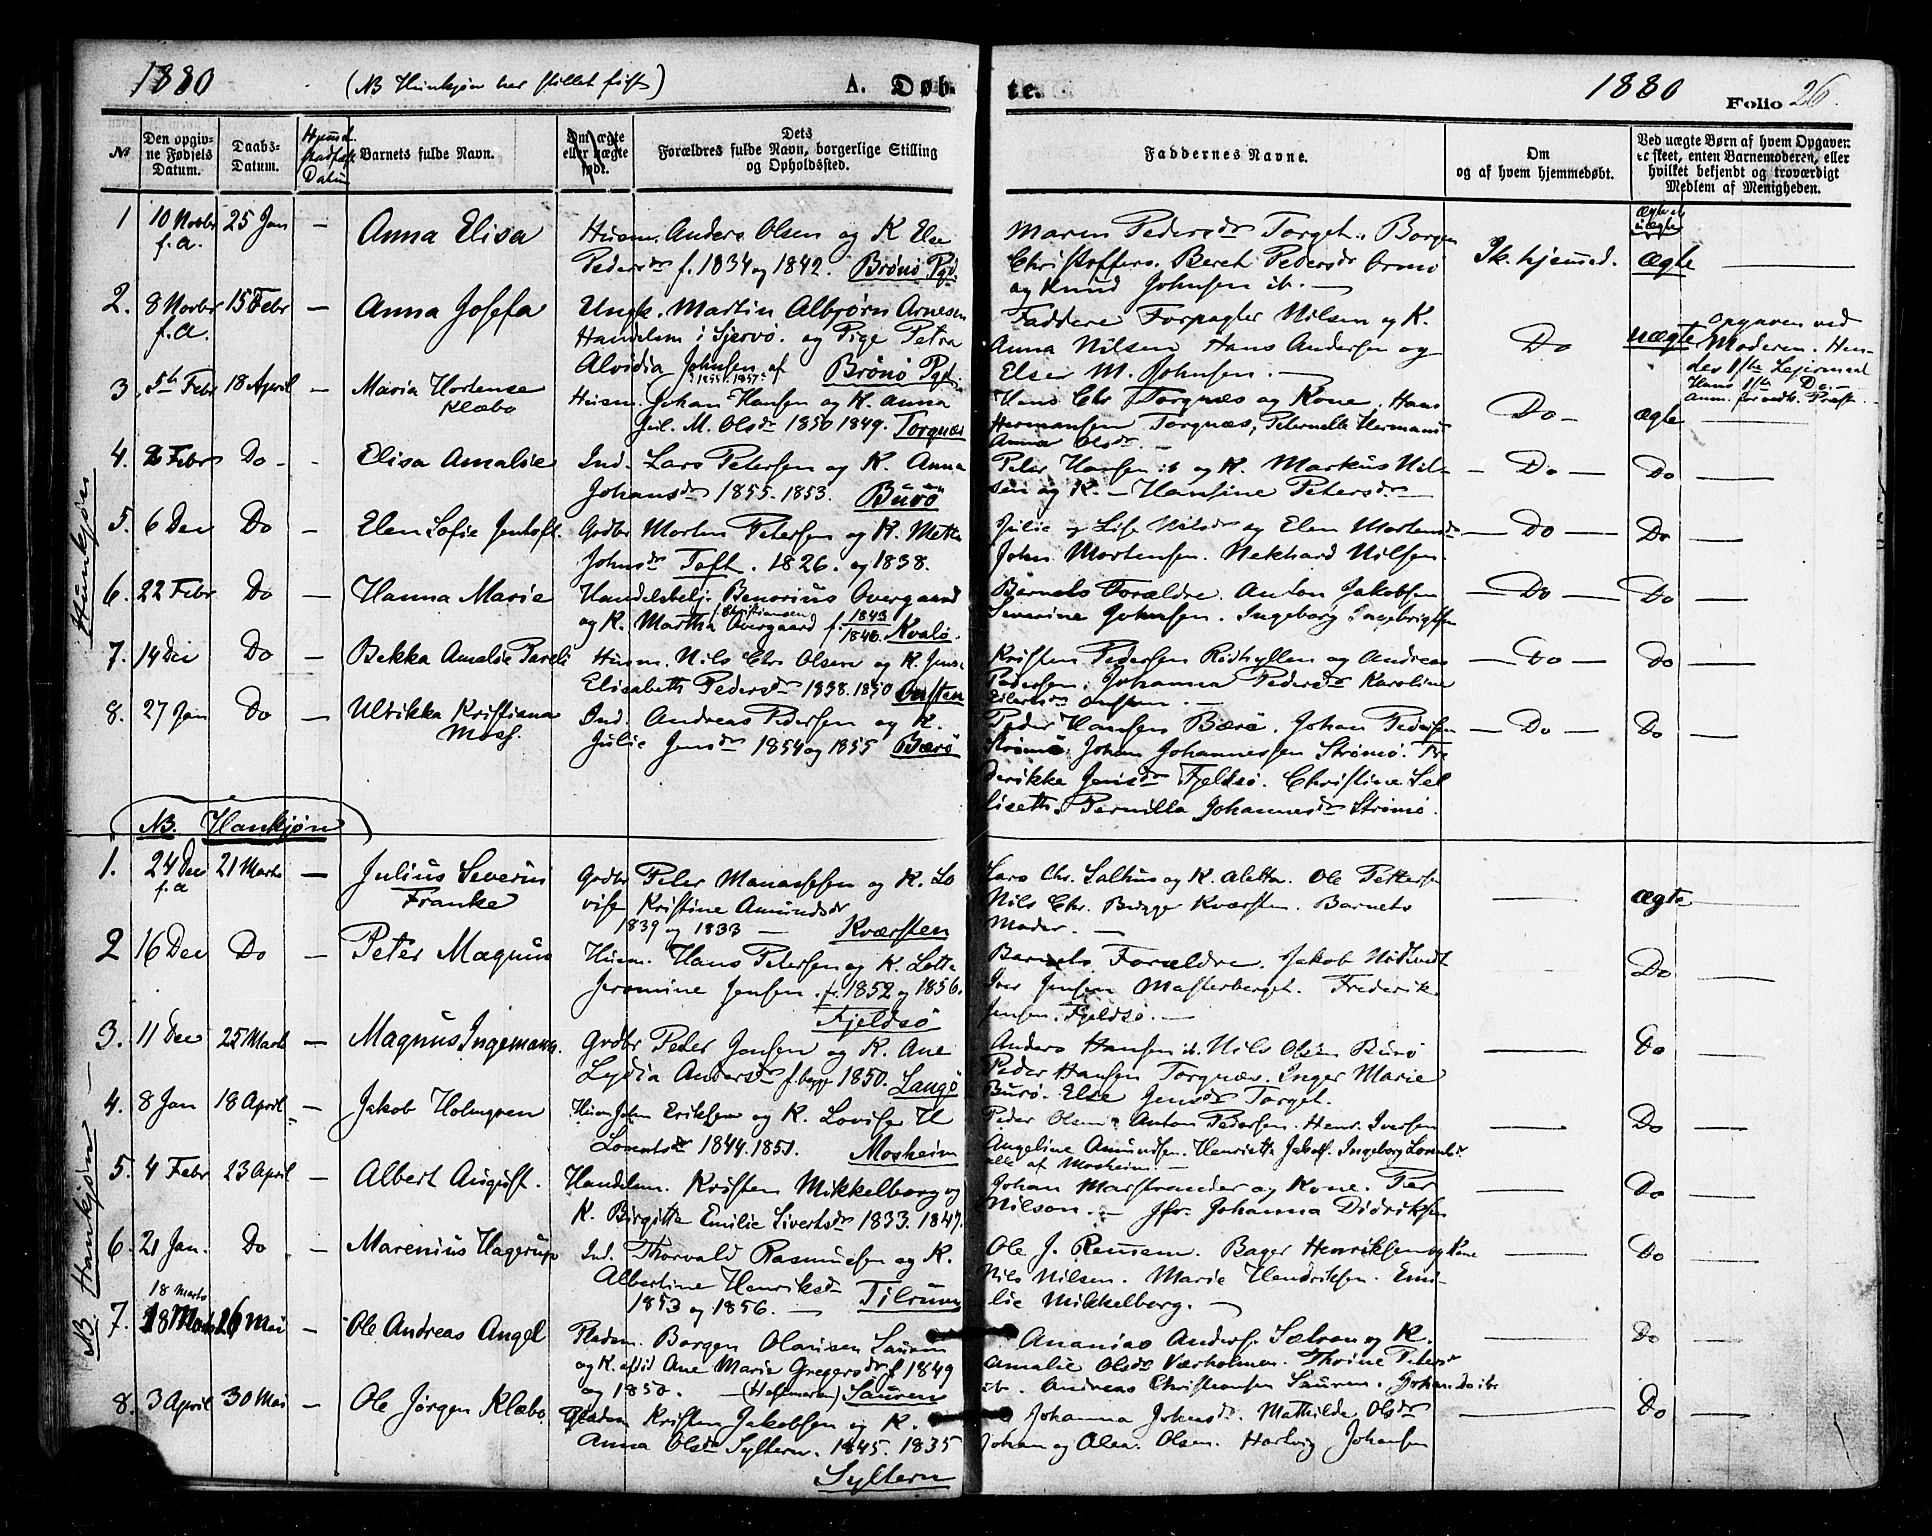 1880 (NB Hunkjøn her stillet først) A. Døb- te. 1880 Folio 26.
No Den opgivne Fødsels Datum. Daabs-Datum. Hjemd. Stadf. Datum Barnets fulde Navn. Om ægte eller uægte født. Dets Forældres fulde Navn, borgerlige Stilling og Opholdssted. Faddernes Navne. Om og af hvem hjemmedøbt. Ved uægte Børn af hvem Opgaven er skeet, enten Barnemoderen, eller hvilket bekjendt og troværdigt Medlem af Menigheden.
Hunkjøn
ægte el. uægte
1 10 Novbr f.a. 25 Jan — Anna Elisa
Husm. Anders Olsen og K. Else
Pedersdr f. 1834 og 1842. Brønø Pgd.
Maren Pedersdr Torget. Borgen
Christoffers. Beret Pedersdr
og Knud Johnsen ib. —
Pk. hjemmed. ægte —
2. 8 Novbr f.a. 15 Febr — Anna Josefa
Ungk. Martin Albjørn Arnesen
Handelsm i Sjervø. og Pige Petra
Alvidia Johnsen af Brønø Pgd.
1855. 1857.
Faddere Forpagter Nilsen og K.
Anna Nilsen Hans Andersen og
Elser M. Johnsen. —
Do uægte Opgaven ved
Moderen. Hendes 1ste Lejermaal
Hans 1ste Do. —
3 5te Febr 18 April — Maria Hortense
Klæbo
Husm. Johan Hansen og K. Anna
Jul. M. Olsdr 1850 1849. Torgnæs
Hans Chr Torgnæs og Kone. Hans
Hermansen Torgnæs, Peternella Hermans
Anna Olsdr —
Do — ægte —
4. 2 Febr Do — Elisa Amalie
Ind. Lars Petersen og K. Anna
Johansdr 1855. 1853. Burö
Peter Hansen ib og K. Markus Nilsen
og K. — Hansine Petersdr
— Do — Do —
5. 6 Dec Do — Elen Sofie Jentoft.
Gdbr Morten Petersen og K. Mette
Johnsdr Toft. 1826. og 1838.
Julie og Lise Nilsdr og Elen Mortensdr
John Mortensen. Nekhard Nilsen
— Do — Do —
6. 22 Febr Do — Hanna Marie
Handelsbetj. Benorius Overgaard
og K. Martha Overgaard f. Christiansen f. 1843 1846. Kvalø.
Barnets Forældre. Anton Jakobsen
Severine Johnsen. Ingeborg Ingebrigtsen
— Do — Do —
7. 14 Dec Do — Bekka Amalie Pareli
Husm. Nils Chr Olsen og K. Jens.
Elisabeth Pedersdr 1838. 1850
Kristen Pedersen Rødhyllen og Andreas
Pedersen. Johanna Pedersdr Karoline
— Do — Do —
8. 27 Jan Do — Ulrikka Kristiana
Moss.
Ind. Andreas Pedersen og K.
Julie Jensdr 1854 og 1855 Bærö
Peder Hansen Bærö. Johan Pedersen
Strömö. Johan Johannessen Strömö. Frederikke
Jensdr Fjeldsö. Christine Sel
liseth. Pernilla Johannesdr Strömö.
— Do — Do —
NB. Hankjøn
1. 24 Dec f.a 21 Marts — Julius Severin
Franke
Gdbr Peter Manassesen og K. Lo
vise Kristine Amundsdr
1839 og 1833 — Kværsten
Lars Chr. Salhus og K. Aletta. Ole Pettersen
Nils Chr. Brygger Kværsten. Barnets
Moder. —
— ægte —
2 16 Dec Do — Peter Magnus
Husm. Hans Petersen og K. Lotte
Jeromine Jensen. f. 1852 og 1856.
Fjeldsö
Barnets Forældre. Jakob
Iver Jensen Masterberget. Frederik
Jensen. Fjeldsö. —
Do —
3. 11 Dec 25 Marts — Magnus Ingemann.
Grdbr Peder Jensen og K. Ane
Lydia Andersdr f. begge 1850. Langö
Anders Hansen ib. Nils Olsen Burö
Peder Hansen Torgnæs. Inger Marie
Burö. Else Jensdr Torget.
— Do —
NB. Hankjøn —
4. 8 Jan 18 April — Jakob Holmgren
Husm John Eriksen og K. Lovise U
Lorentsdr 1844. 1851. Mosheim
Peder Olsen Anton Pedersen. Henr. Iversen
Angeline Amundsen. Henriette Jakobs. Ingeborg Lorentsdr
alle af Mosheim. —
— Do —
5. 4 Febr 23 April — Albert August.
Handelsm. Kristen Mikkelborg og
K. Birgitte Emilie Sivertsdr 1833. 1847.
Johan Marstrander og Kone. Per
Nilson. — Jfr. Johanna Didriksen
— Do —
6. 21 Jan. Do — Marenius Hagerup
Ind. Thorvald Rasmusen og K.
Albertine Henriksdr
1853 og 1856. — Tilrem
Ole J. Remsem. Bager Henriksen og Kone
Nils Nilsen. Marie Hendriksen. Emi
lie Mikkelborg. —
— Do —
18 Marts
7. 18 Marts 26 Mai — Ole Andreas Angel
Pladsm. Borgen Olausen Sauren
og K. Ane Maria Gregersdr f 1849
og 1850. — Sauren
Ananias Anders. Sætran og K.
Amalie Olsdr Værholmen. Thrine Petersdr
ib. Andreas Christiansen Sauren. Johan Do ib.
— Do —
8. 3 April 30 Mai — Ole Jørgen Klæbo
Pladsm Kristen Jakobsen og K.
Anna Olsdr Syltern. 1845. 1835
Syltern
Johanna Johnsdr. Mathilde Olsdr
Johan og Olea. Olsen. Hartvig Johansen
— Do —